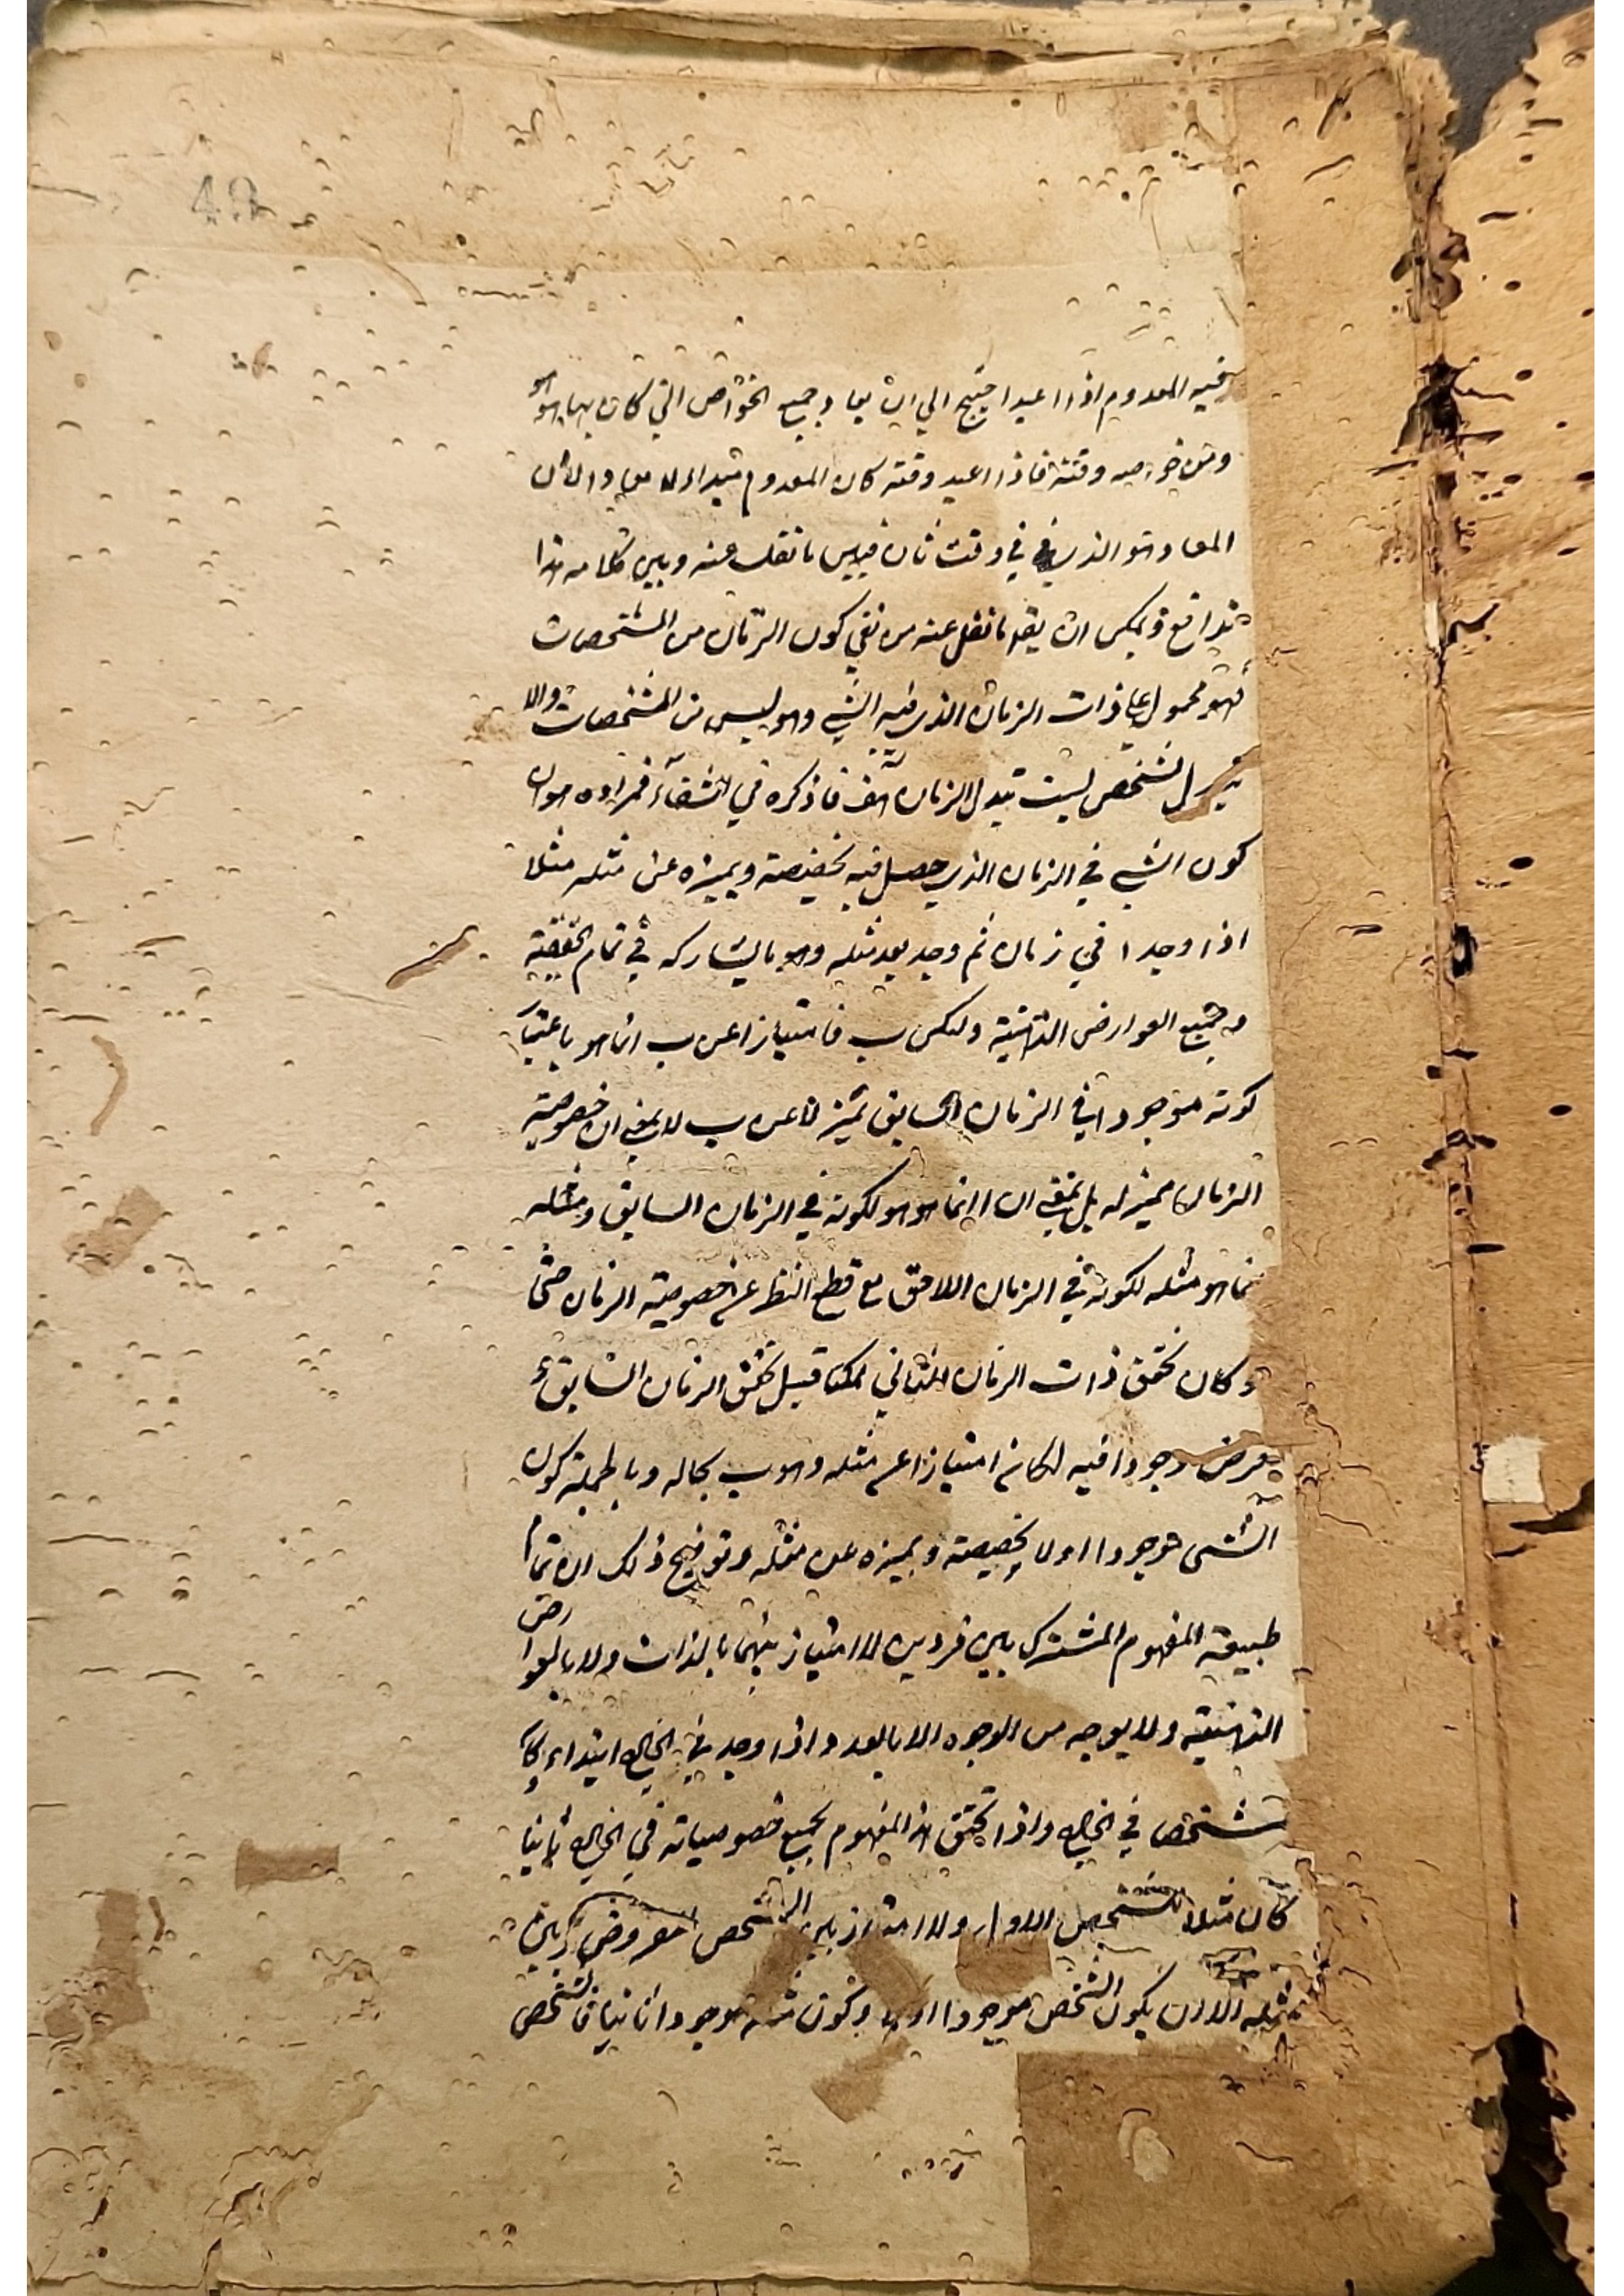 49
فيه المعدوم اذا اعيد احتيج الي ان يعاد جميع الخواص التي كان بها هو هو
ومن خواصه وقته فاذا اعيد وقته كان المعدوم مبتداء لا معاد لان
المعاد هو الذي في وقت ثان فبين ما نقلت عنه وبين كلامه هذا
تدافع ويمكن ان يقه ما نقل عنه من نفي كون الزمان من المشخصات
فهو محمول علي ذات الزمان الذي فيه الشي وهو ليس من المشخصات والا
تبدل الشخص لبست تبدل الزمان هف فما ذكره في الشفاء فمراده هو ان
كون الشي في الزمان الذي حصل فيه يخصصه ويميزه عن مثله مثلا
اذا وجد ا في زمان ثم وجد بعد مثله وهو ما يشاركه في تمام الحقيقة
وجميع العوارض الذهنية وليكن ب فامتياز ا عن ب انما هو باعتبار
كونه موجودا في الزمان السابق تميز ا عن ب لا بمعني ان خصوصية
الزمان مميز له بل بمعني ان ا انما هو هو لكونه في الزمان السابق ومثله
نما هو مثله لكونه في الزمان اللاحق مع قطع النظر عن خصوصية الزمان حتي
لو كان تحقق ذات الزمان الثاني ممكنا قبل تحقق الزمان السابق و
فرض وجود ا فيه لكان امتياز ا عن مثله وهو ب بحاله وبالجملة كون
الشي موجودا اولا يخصصه ويميزه عن مثله وتوضيح ذلك ان تمام
طبيعة المفهوم المشترك بين فردين لا امتياز بينهما بالذات ولا بالعوارض
الذهنية ولا بوجه من الوجوه الا بالعدد اذا وجد في الخارج ابتداء كان
شخصا في الخارج واذا تحقق هذا المفهوم بجميع خصوصياته في الخارج ثانيا
كان مثلا للشخص الاول ولا امتياز بين الشخص المعروض وبين
مثله الا ان يكون الشخص موجودا اولا وكون مثله موجودا ثانيا فالشخص